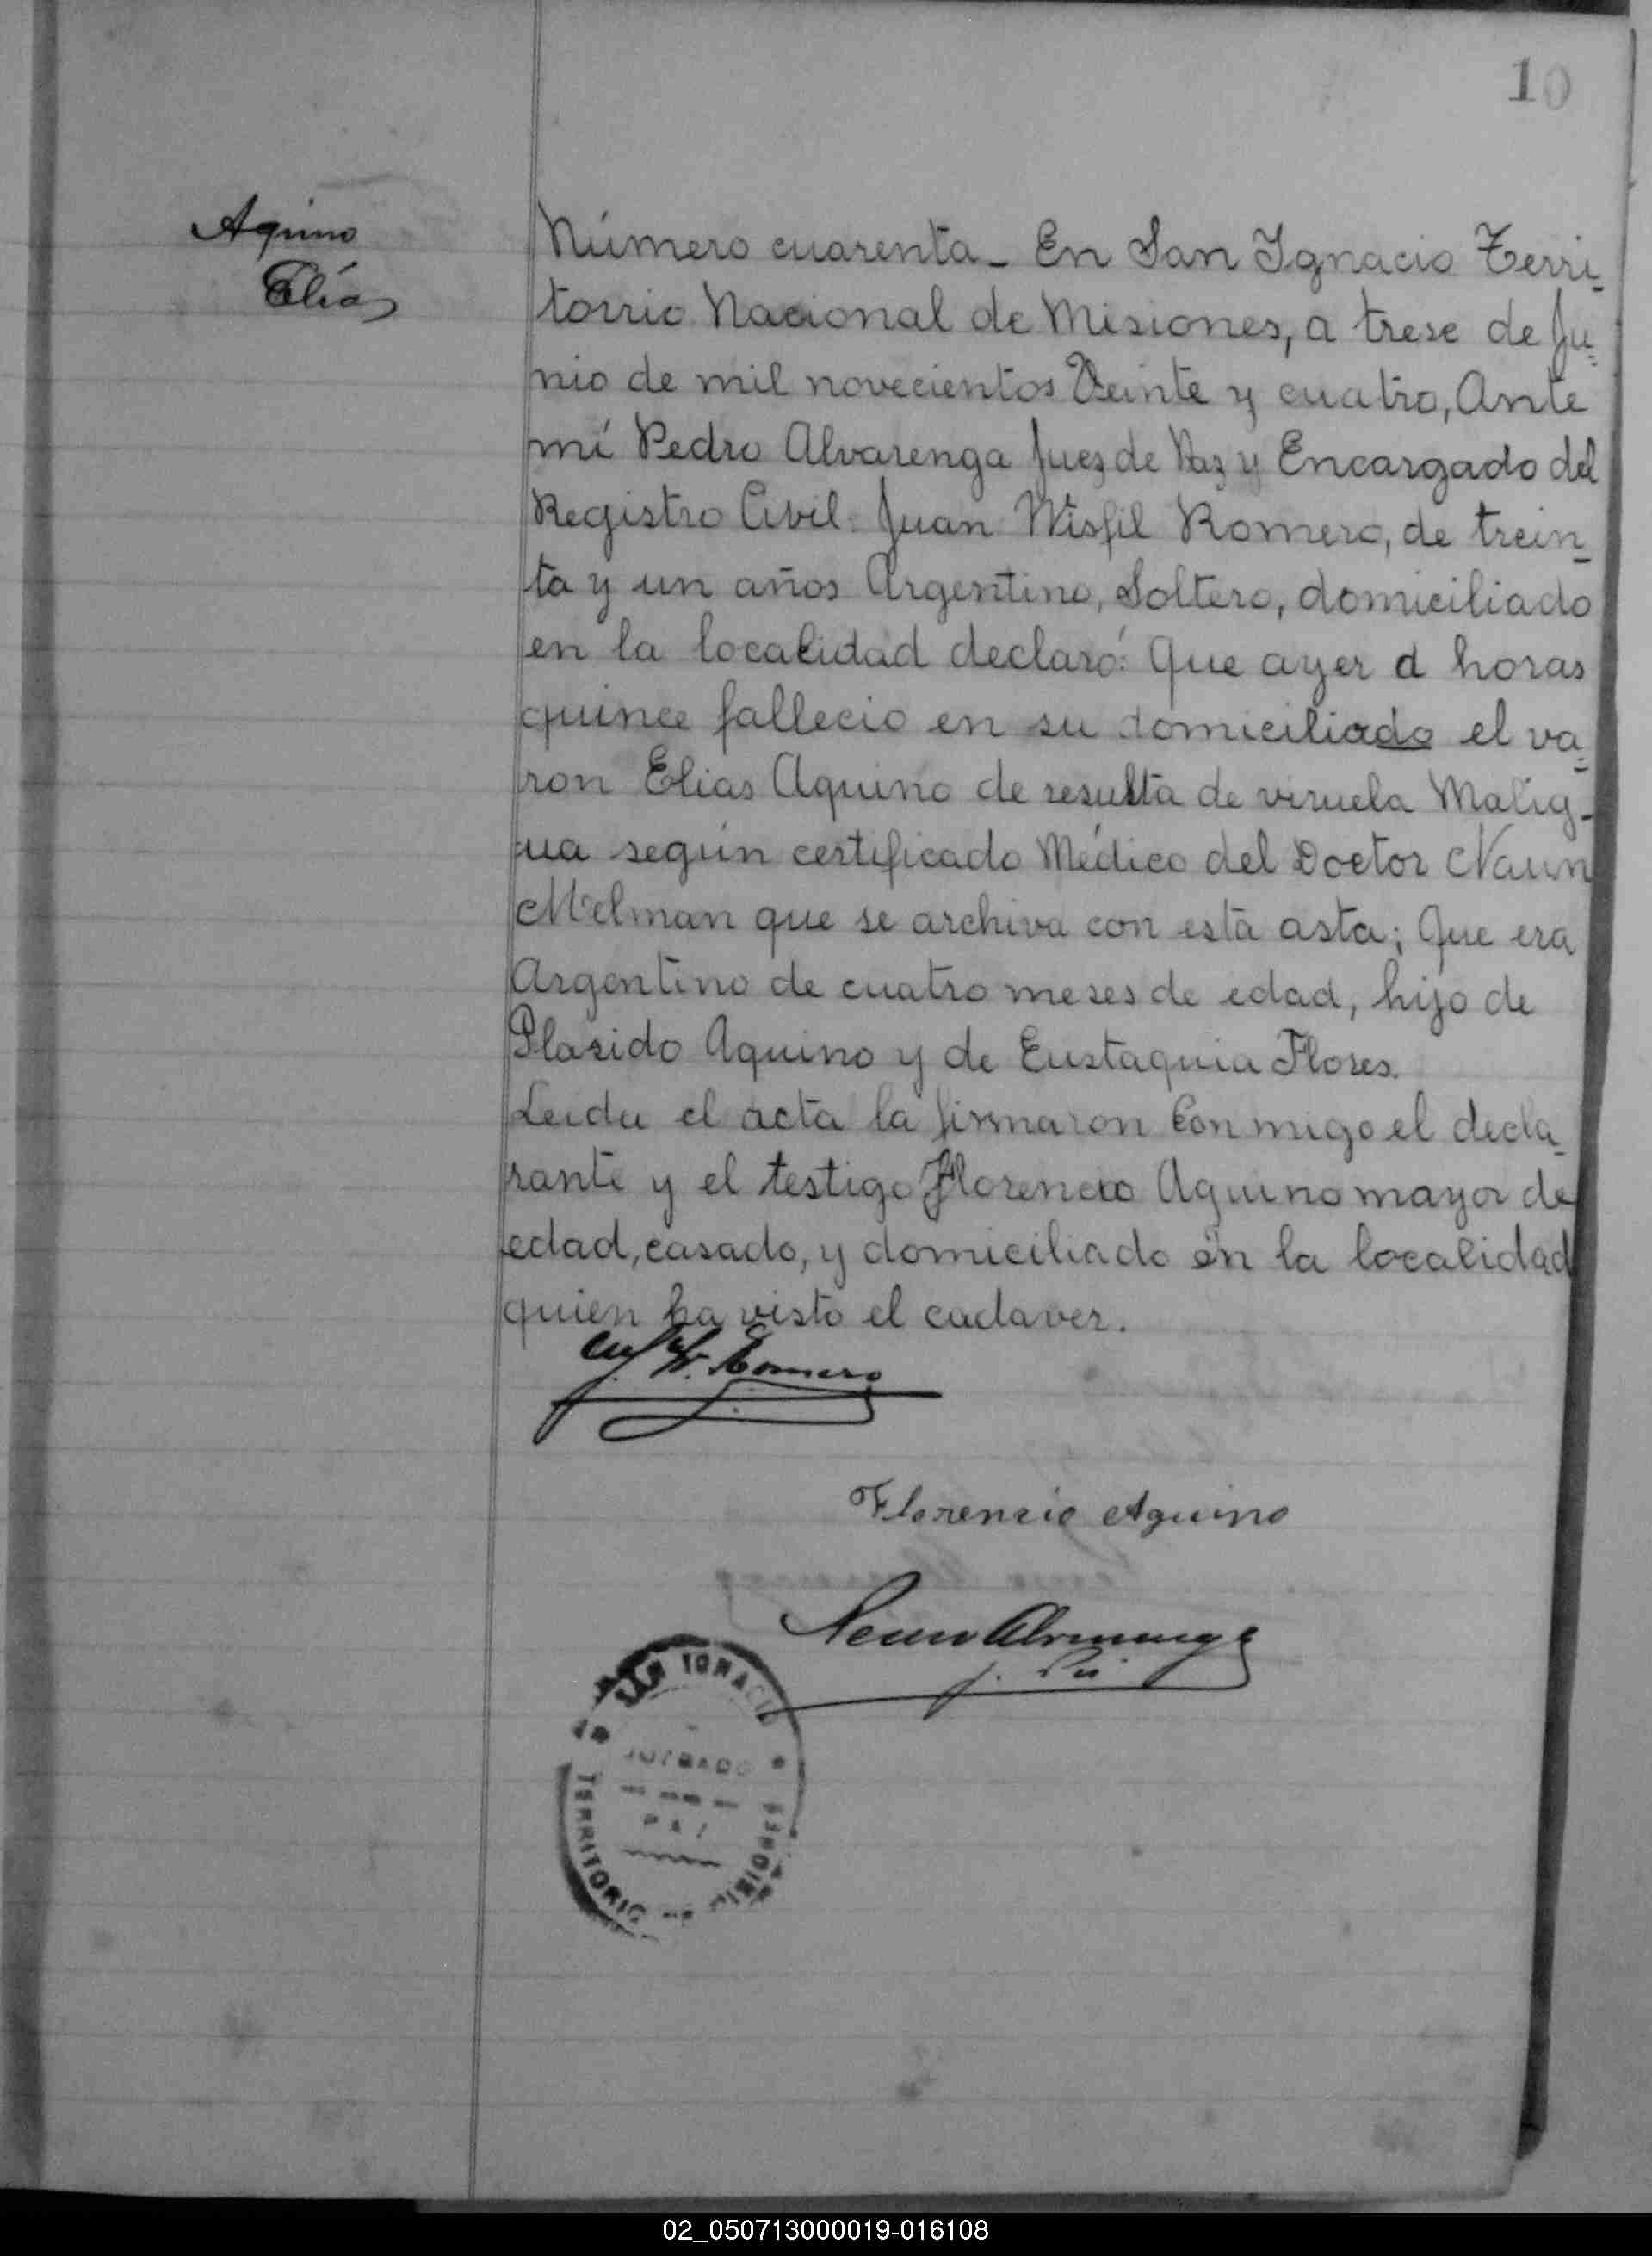 10
Aquino
Elías
Número cuarenta_ En San Ignacio Terri_
torrio Nacional de Misiones, a trese de Ju_
nio de mil novecientos Veinte y cuatro, Ante
mí Pedro Alvarenga Juez de Paz y Encargado del
Registro Civil: Juan Wisfil Romero, de trein_
ta y un años Argentino, Soltero, domiciliado
en la localidad declaró: Que ayer a horas
quince fallecio en su domiciliado el va_
ron Elias Aquino de resulta de viruela Malig-
na según certificado Médico del Doctor Naun
Melman que se archiva con está asta; Que era
Argentino de cuatro meses de edad, hijo de
Plasido Aquino y de Eustaquia Flores.
Leida el acta la firmaron Conmigo el decla_
rante y el testigo Florencio Aquino mayor de
edad, casado, y domiciliado en la localidad
quien ha visto el cadaver.
J. W. Romero
Florencio Aquino
Pedro Alvarenga
SAN IGNACIO
JUZGADO
PAZ
TERRITORIO MISIONES
02_050713000019-016108